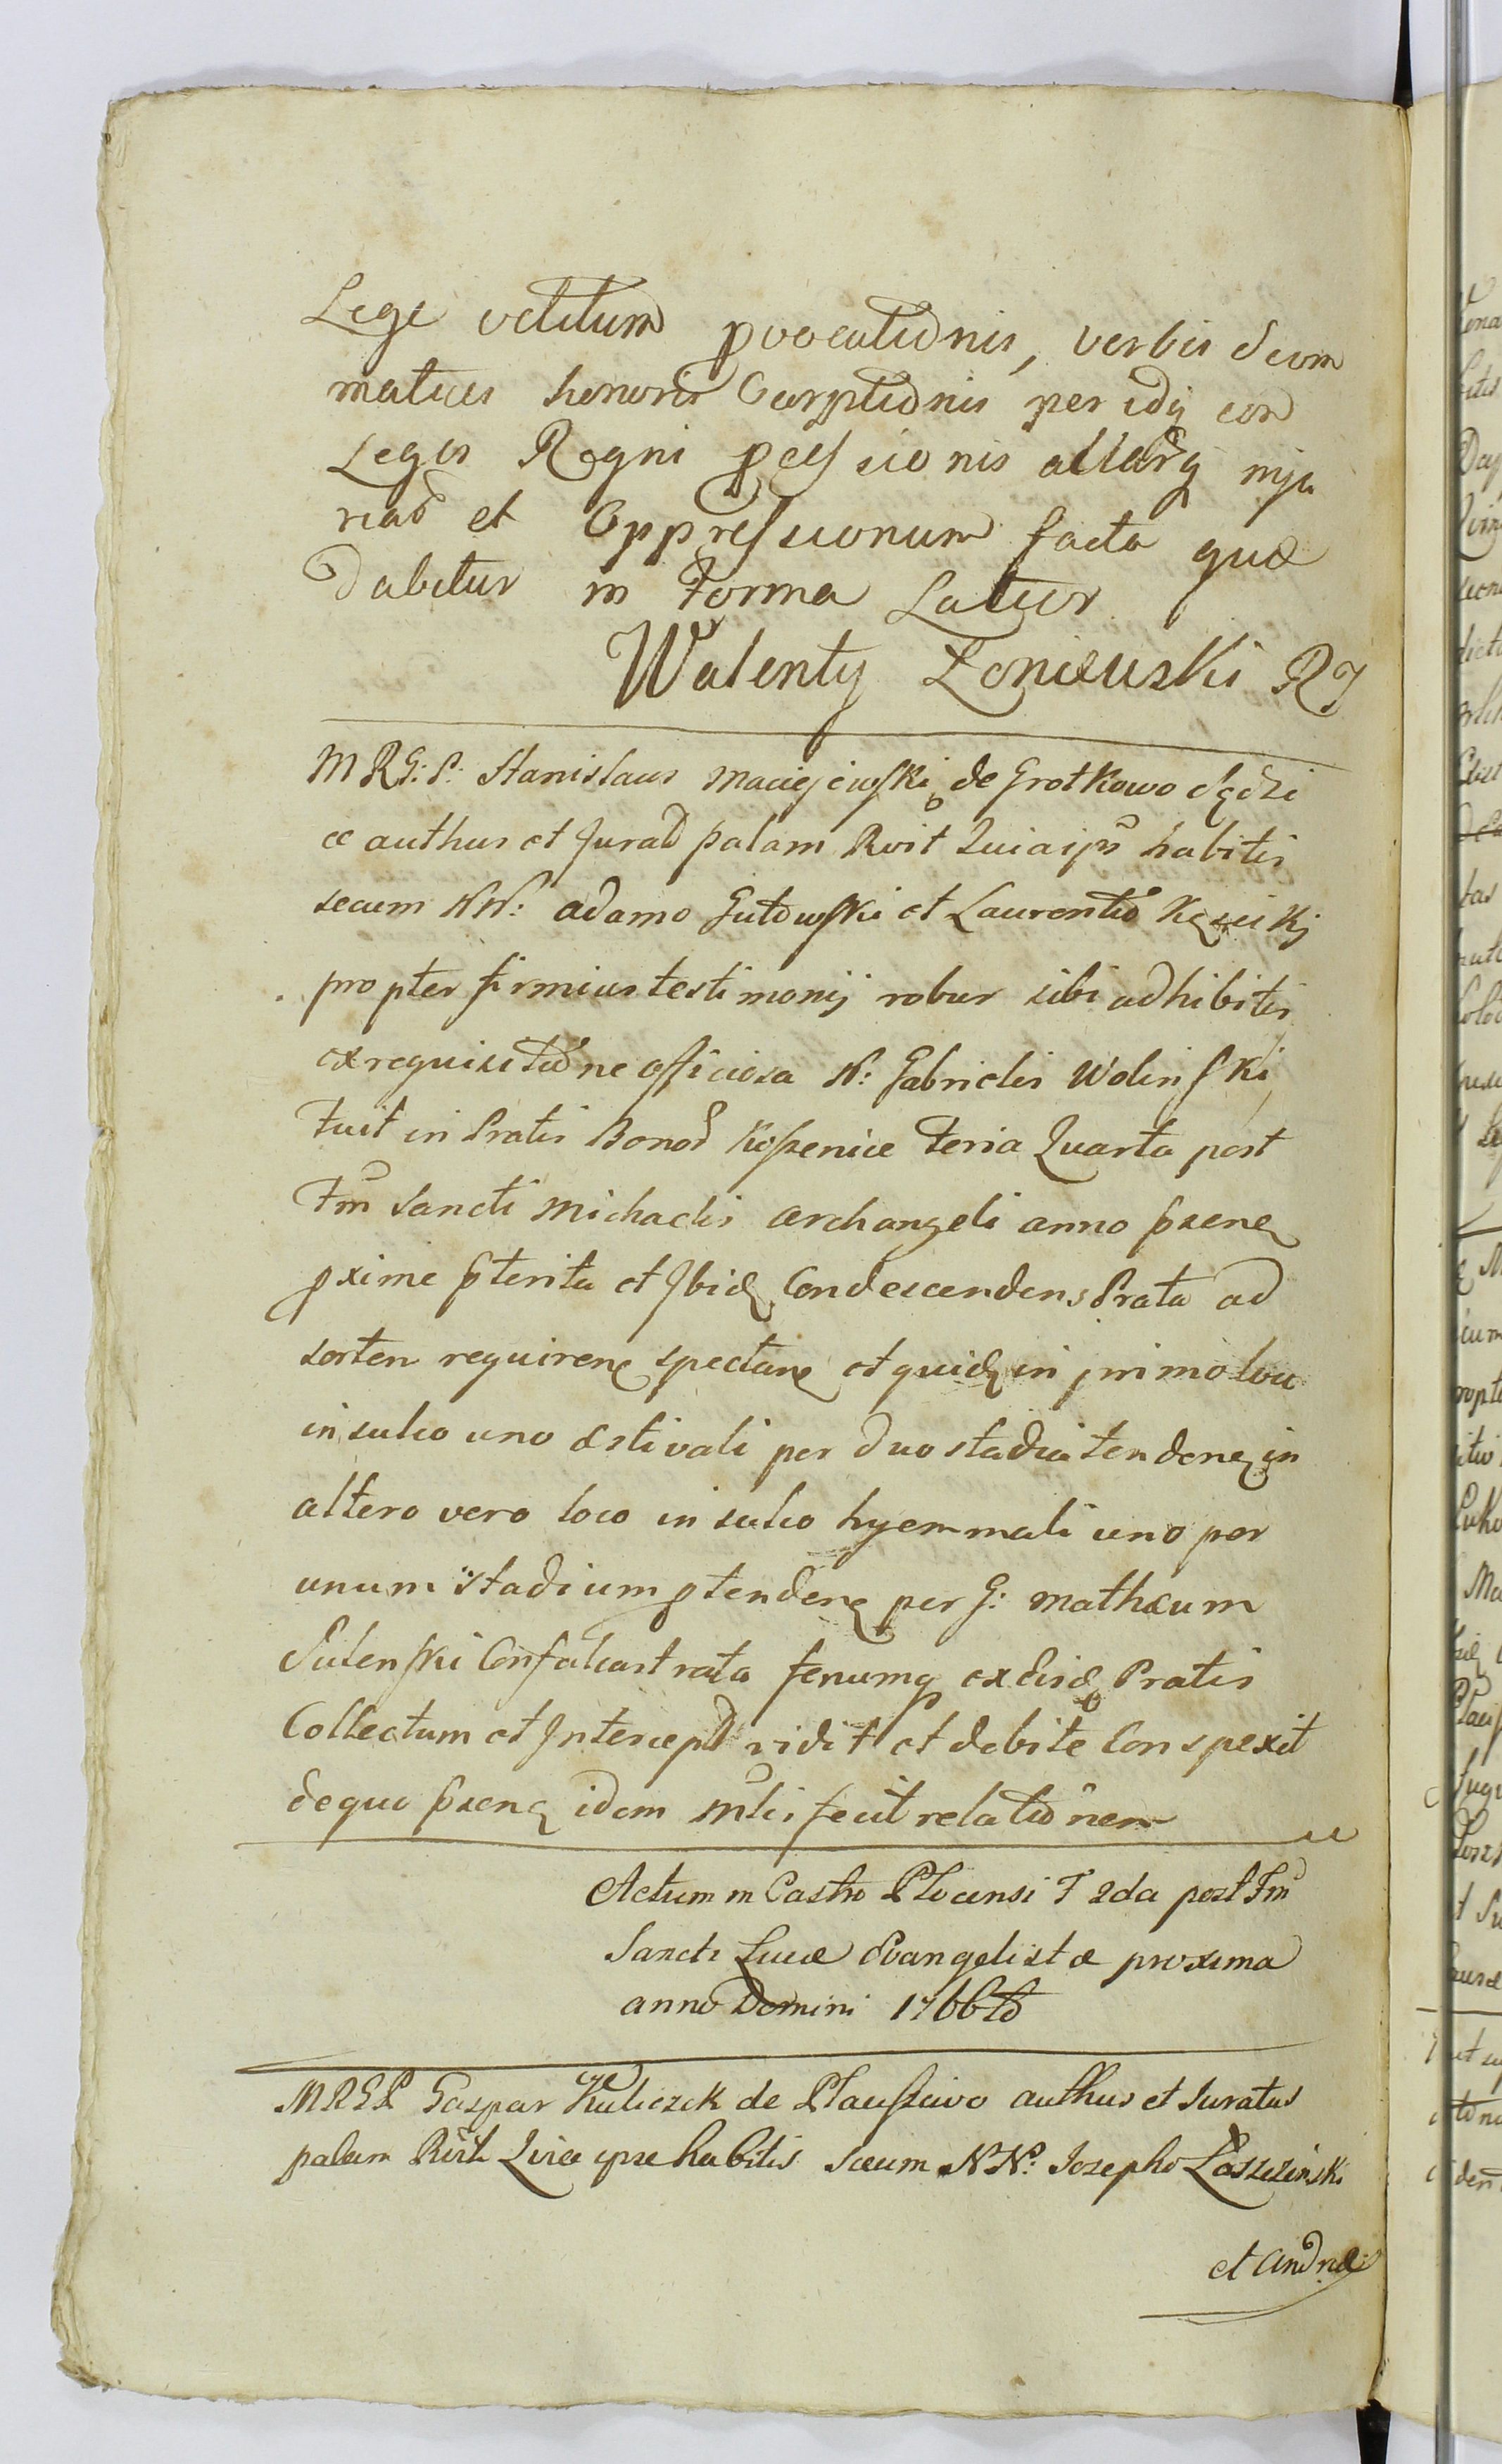 Lege vetitum pvocationis, verbis Scom
maticis honoris Corptionis per idq con
Leges Regni pcessionis allarq inju
riad et Oppressionum facta quæ
dabitur in Forma Latior
Walenty Zoniewski RJ
MRG: P: Stanislaus Maciejewski de Grotkowo Sędzi
ce authus et Jurad palam Rvit Quia ipse habitis
secum NN: Adamo Gutowski et Laurentio
propter firmius testimonij robur sibi adhibitis
ex requisitione officiosa N: Gabrielis Wolinski
Fuit in Pratis Bonod Koszenice Feria Quarta post
Fm Sancti Michaelis Archangeli anno psene
pxime pterita et Ibid Condescendens Prata ad
sortem requirene spectane et quid in primo loco
in sulco uno æstivali per duo stadia tendene in
altero vero loco in sulco hyemmali uno per
unum stadium ptendene per G: Mathæum
Sulenski Confalcastrata fenumq ex eisd Pratis
Collectum et Intercept vidit et debite Conspexit
de quo psene idem Mlis fecit relationem
Actum in Castro Plocensi F 2da post Fm
Sancti Lucæ Evangelistæ proxima
anno Domini 1766to
MRGP Gaspar Kuliczek de authus et Juratus
palam Rvit Quia ipse habitis secum NN: Josepho Łoszczinski
et Andreæ